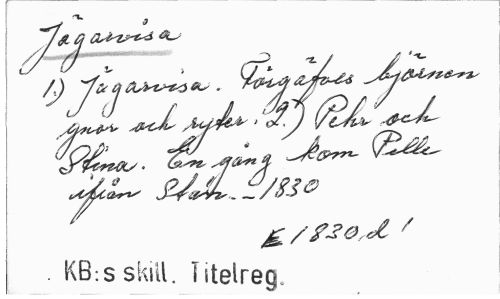 Jägarvisa
1.) Jägarvisa. Förgäfves björnen
gnor och ryter. 2.) Pehr och
Stina. En gång kom Pelle
ifrån Stan. - 1830
E 1830, d !
KB:s skill. Titelreg.